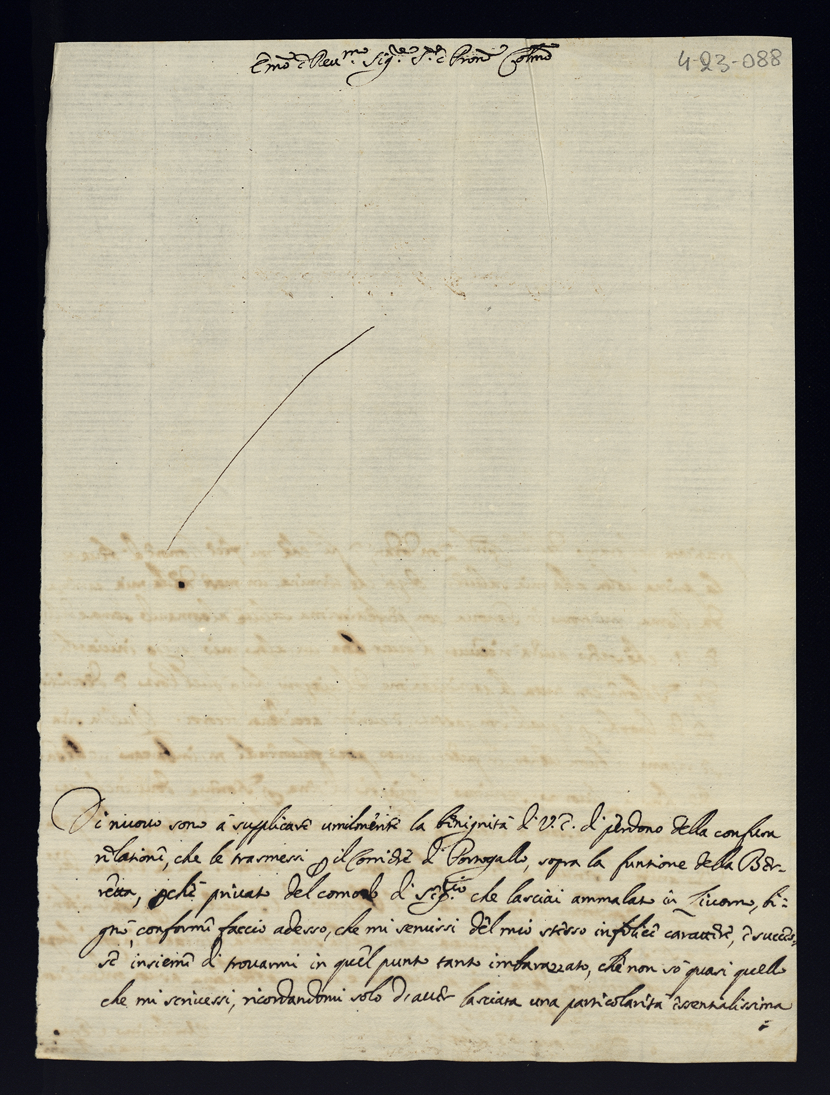 Emo e Reu.mo Sig.re S.r e Pron Colmo
4-23-088
Di nuouo sono à supplicare umilmente la benignità di V.E. di perdono della confusa
relatione, che le trasmessi p il Corriere di Portogallo, sopra la funtione della Ber-
retta, pche priuato del comodo di Seg.rio che lasciai ammalato in Liuorno, bi=
gnò conforme faccio adesso, che mi seruissi del mio stesso infelice carattere, e succes
se insieme di trouarmi in quel punto tanto imbarazzato, che non sò quasi quello
che mi scriuessi, ricordandomi solo d'auer lasciata una particolarità essentialissima
è